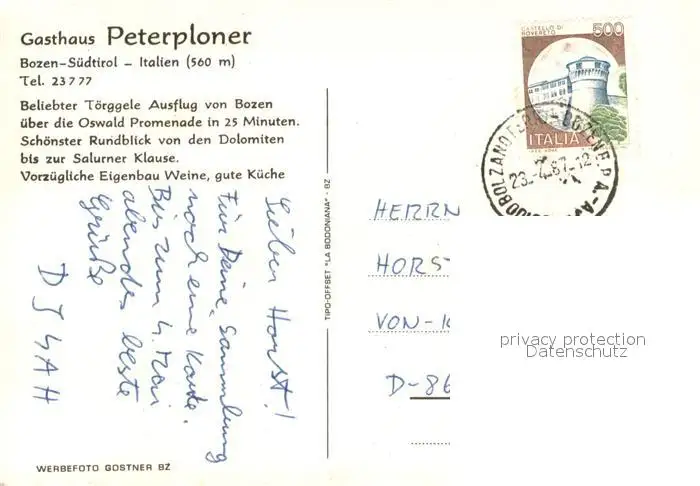 Gasthaus Peterploner
Bozen-Südtirol – Italien (560 m)
Tel. 23777
Beliebter Törggele Ausflug von Bozen
über die Oswald Promenade in 25 Minuten.
Schönster Rundblick von den Dolomiten
bis zur Salurner Klause.
Vorzügliche Eigenbau Weine, gute Küche
Lieber Horst!
Für Deine Sammlung
noch eine Karte.
Bis zum 4. Mai
abends beste
Grüße
WERBEFOTO GOSTNER BZ
TIPO-OFFSET "LA BODONIANA" - BZ
CASTELLO DI
ROVERETO
500
ITALIA
BOLZANO BOZEN
23.-4.87.-12
HERRN
HORS
VON-
D-86
privacy protection
Datenschutz